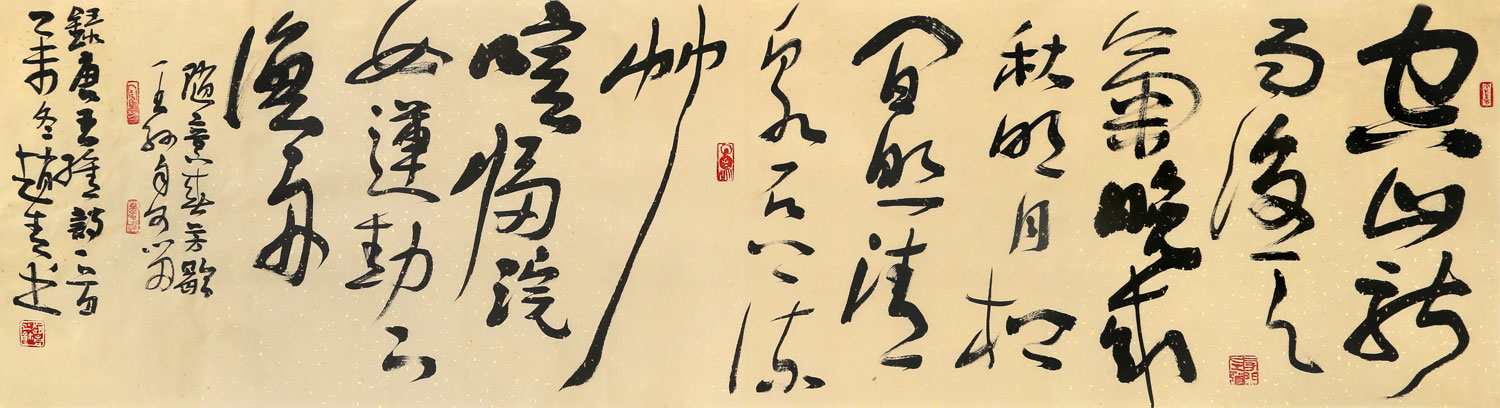 空山新
雨後天
氣晚來
秋明月松
間照清
泉石上流
竹
喧歸浣
女蓮動下
漁舟
隨意春芳歇
王孫自可留
錄唐王維詩一首
乙未冬趙青书